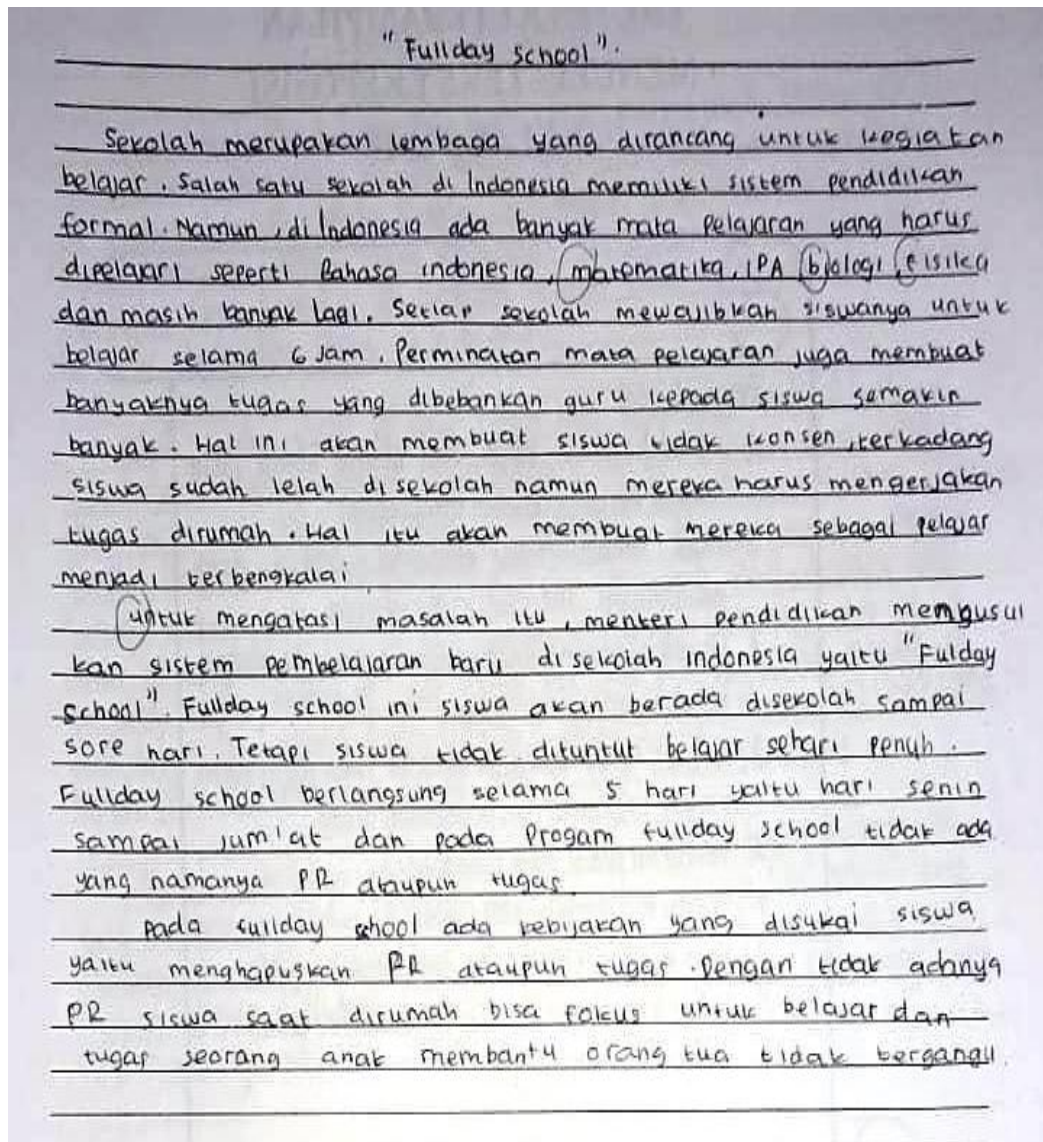 "Fullday school".
Sekolah merupakan lembaga yang dirancang untuk kegiatan
belajar. Salah satu sekolah di Indonesia memiliki sistem pendidikan
formal. Namun, di Indonesia ada banyak mata pelajaran yang harus
dipelajari seperti Bahasa indonesia, matematika, IPA biologi, fisika
dan masih banyak lagi. Setiap sekolah mewajibkan siswanya untuk
belajar selama 6 Jam. Perminatan mata pelajaran juga membuat
banyaknya tugas yang dibebankan guru kepada siswa semakin
banyak. Hal ini akan membuat siswa tidak konsen, terkadang
siswa sudah lelah di sekolah namun mereka harus mengerjakan
tugas dirumah. Hal itu akan membuat mereka sebagai pelajar
menjadi terbengkalai
untuk mengatasi masalah itu, menteri pendidikan mengusul
kan sistem pembelajaran baru di sekolah indonesia yaitu "Fulday
school". Fullday school ini siswa akan berada disekolah sampai
sore hari. Tetapi siswa tidak dituntut belajar sehari penuh.
Fullday school berlangsung selama 5 hari yaitu hari senin
sampai jum'at dan pada Progam fullday school tidak ada
yang namanya PR ataupun tugas.
Pada fullday school ada kebijakan yang disukai siswa
yaitu menghapuskan PR ataupun tugas. Dengan tidak adanya
PR siswa saat dirumah bisa fokus untuk belajar dan
tugas seorang anak membantu orang tua tidak terganggu.